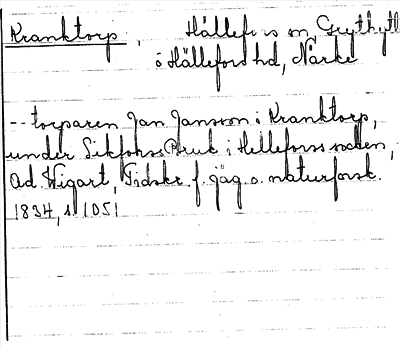 Kranktorp, Hällefors sn, Grythytte
o Hällefors hd, Närke
-- torparen Jan Jansson i Kranktorp,
under Sikfors Bruk i Hellefors socken,
Ad. Wigart, Tidskr. f. jäg. o. naturforsk.
1834, s. 1051